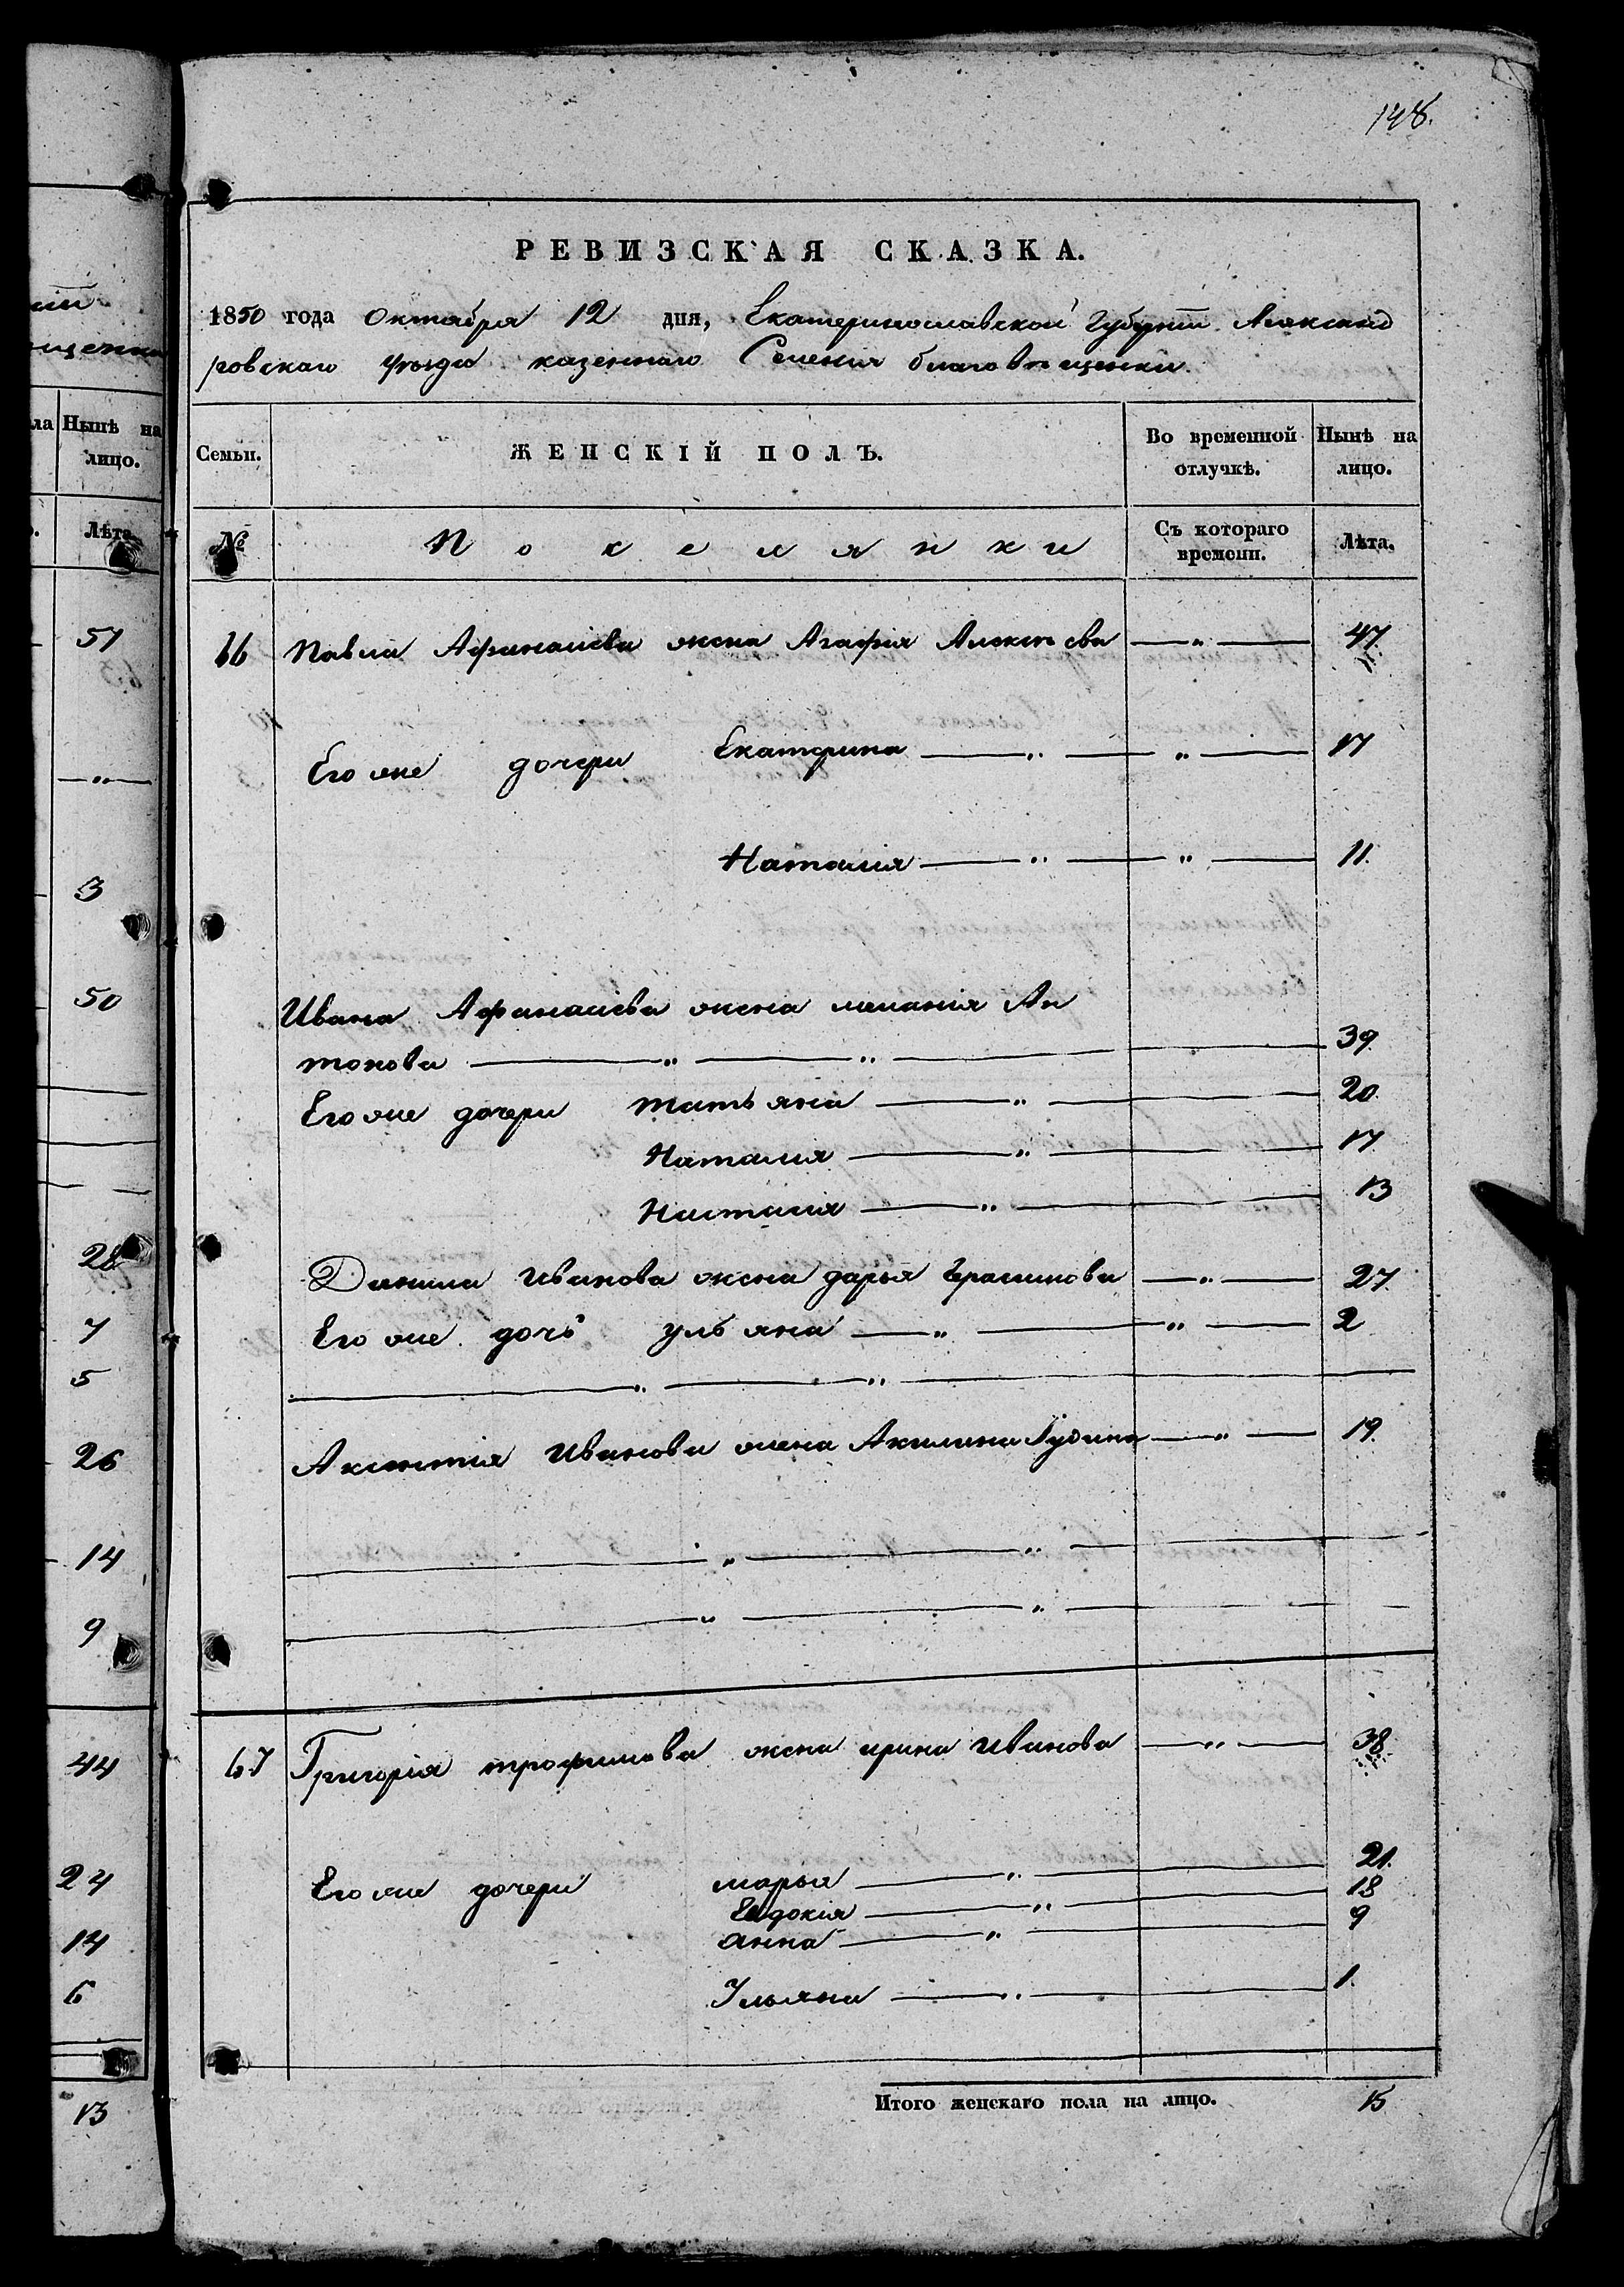 148.
РЕВИЗСКАЯ СКАЗКА.
1850 года Октября 12 дня, Екатеринославской Губерніи Александ
ровскаго уѣзда казеннаго Селенія благовѣщенки
Семьи. ЖЕНСКІЙ ПОЛЪ. Во временной отлучкѣ. Нынѣ на лицо.
№ Поселянки Съ котораго времени. Лѣта.
66 Павла Афанасіева жена Агафія Алексѣева —„— 47
Его же дочери Екатерина —„— „ — 17
Наталія —„— „ — 11.
Ивана Афанасіева жена меланія Ан
тонова —„— „ — 39.
Его же дочери татьяна —„— 20.
Наталия —„— 17.
Наталия —„— 13
Данила Иванова жена дарья Герасимова —„— 27.
Его же дочь ульяна —„— „ — 2
—„— „ —
Аксентія Иванова жена Акилина —„— 19.
—„— „ —
—„— „ —
67 Григорія трофимова жена ирина Иванова —„— 38
Его же дочери марья —„— 21.
Евдокия —„— 18
анна —„— 9
Ульяна —„— 1.
Итого женскаго пола на лицо. 15
ла Нынѣ на
лицо.
Лѣта
51
—„—
3
50
28
7
5
26
14
9
44
24
14
6
13